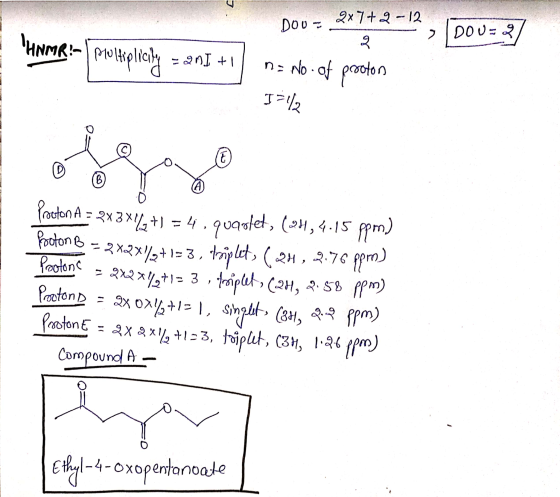 DOU = 2x7+2-12 / 2 , DOU = 2
¹HNMR:- Multiplicity = 2nI + 1
n = No. of proton
I = 1/2
O
C
O
E
D
B
O
A
Proton A = 2x3x1/2+1 = 4, quartet, (2H, 4.15 ppm)
Proton B = 2x2x1/2+1=3, triplet, (2H, 2.76 ppm)
Proton C = 2x2x1/2+1= 3, triplet, (2H, 2.58 ppm)
Proton D = 2x0x1/2+1= 1, singlet, (3H, 2.2 ppm)
Proton E = 2x2x1/2+1=3, triplet, (3H, 1.26 ppm)
Compound A -
O
O
O
Ethyl-4-oxopentanoate